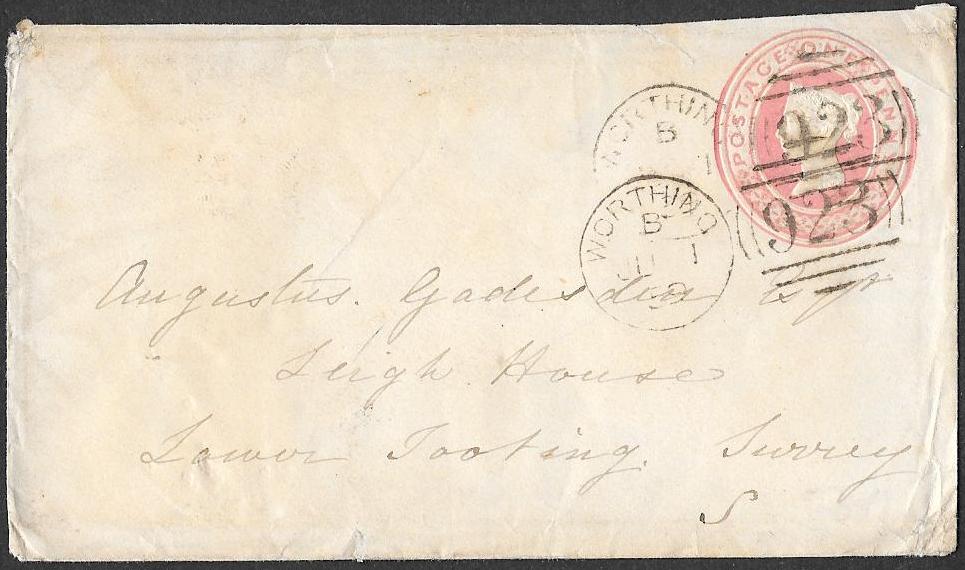 POSTAGE ONE PENNY
WORTHING
B
1
923
WORTHING
B
JU 1
9
923
Augustus. Gadesden Esqr
Leigh House
Lower Tooting. Surrey
S